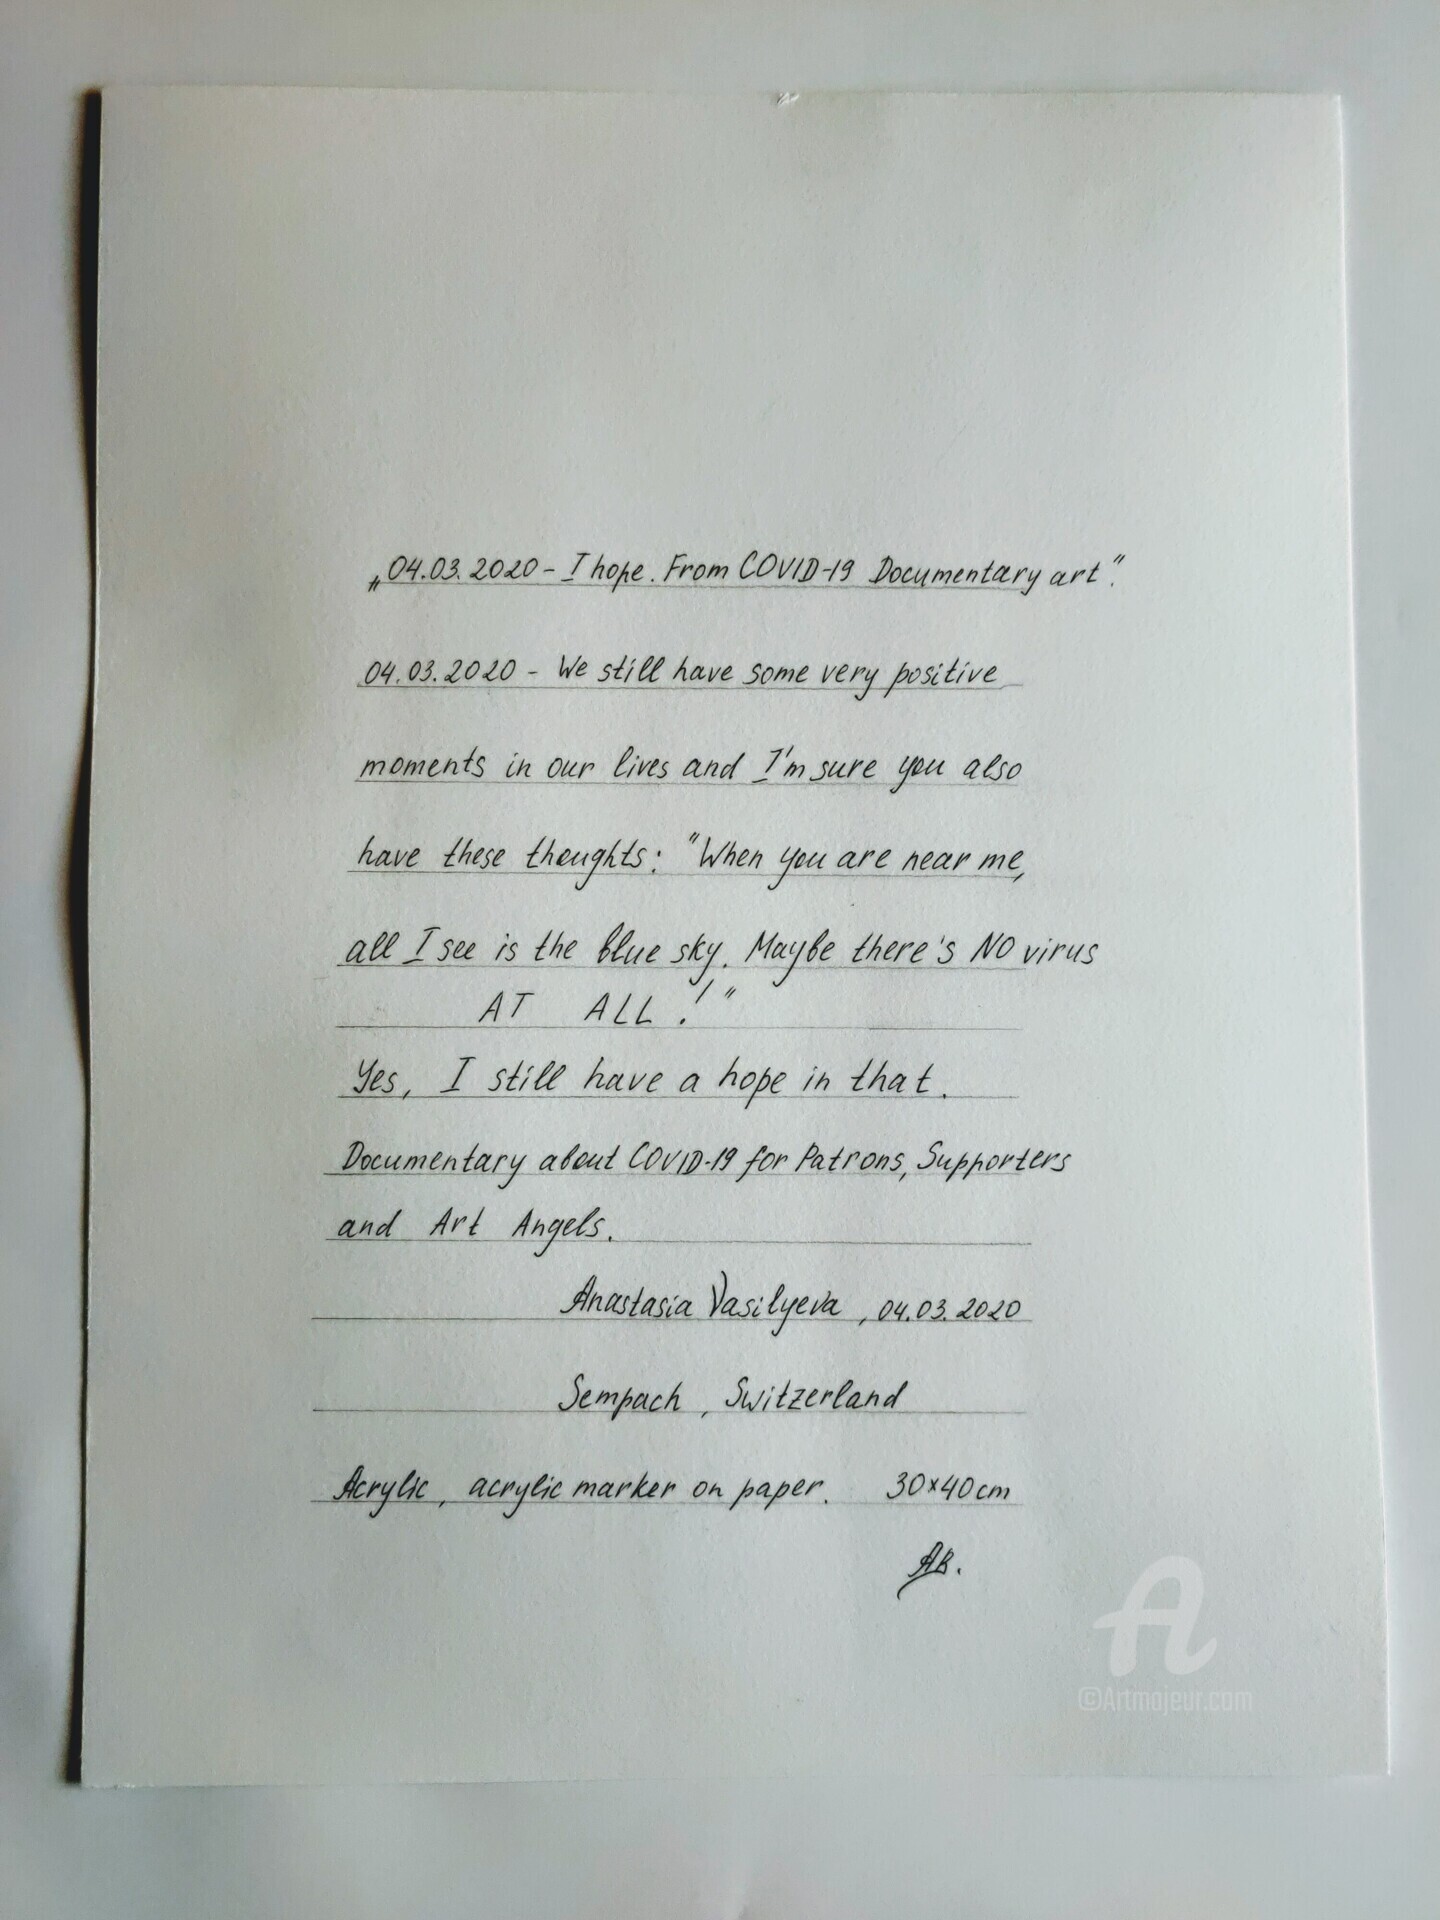 „04.03.2020 - I hope. From COVID-19 Documentary art".
04.03.2020 - We still have some very positive
moments in our lives and I'm sure you also
have these thoughts: "When you are near me,
all I see is the blue sky. Maybe there's NO virus
AT ALL!"
Yes, I still have a hope in that.
Documentary about COVID-19 for Patrons, Supporters
and Art Angels.
Anastasia Vasilyeva, 04.03.2020
Sempach, Switzerland
Acrylic, acrylic marker on paper. 30×40cm
АВ.
A
©Artmajeur.com